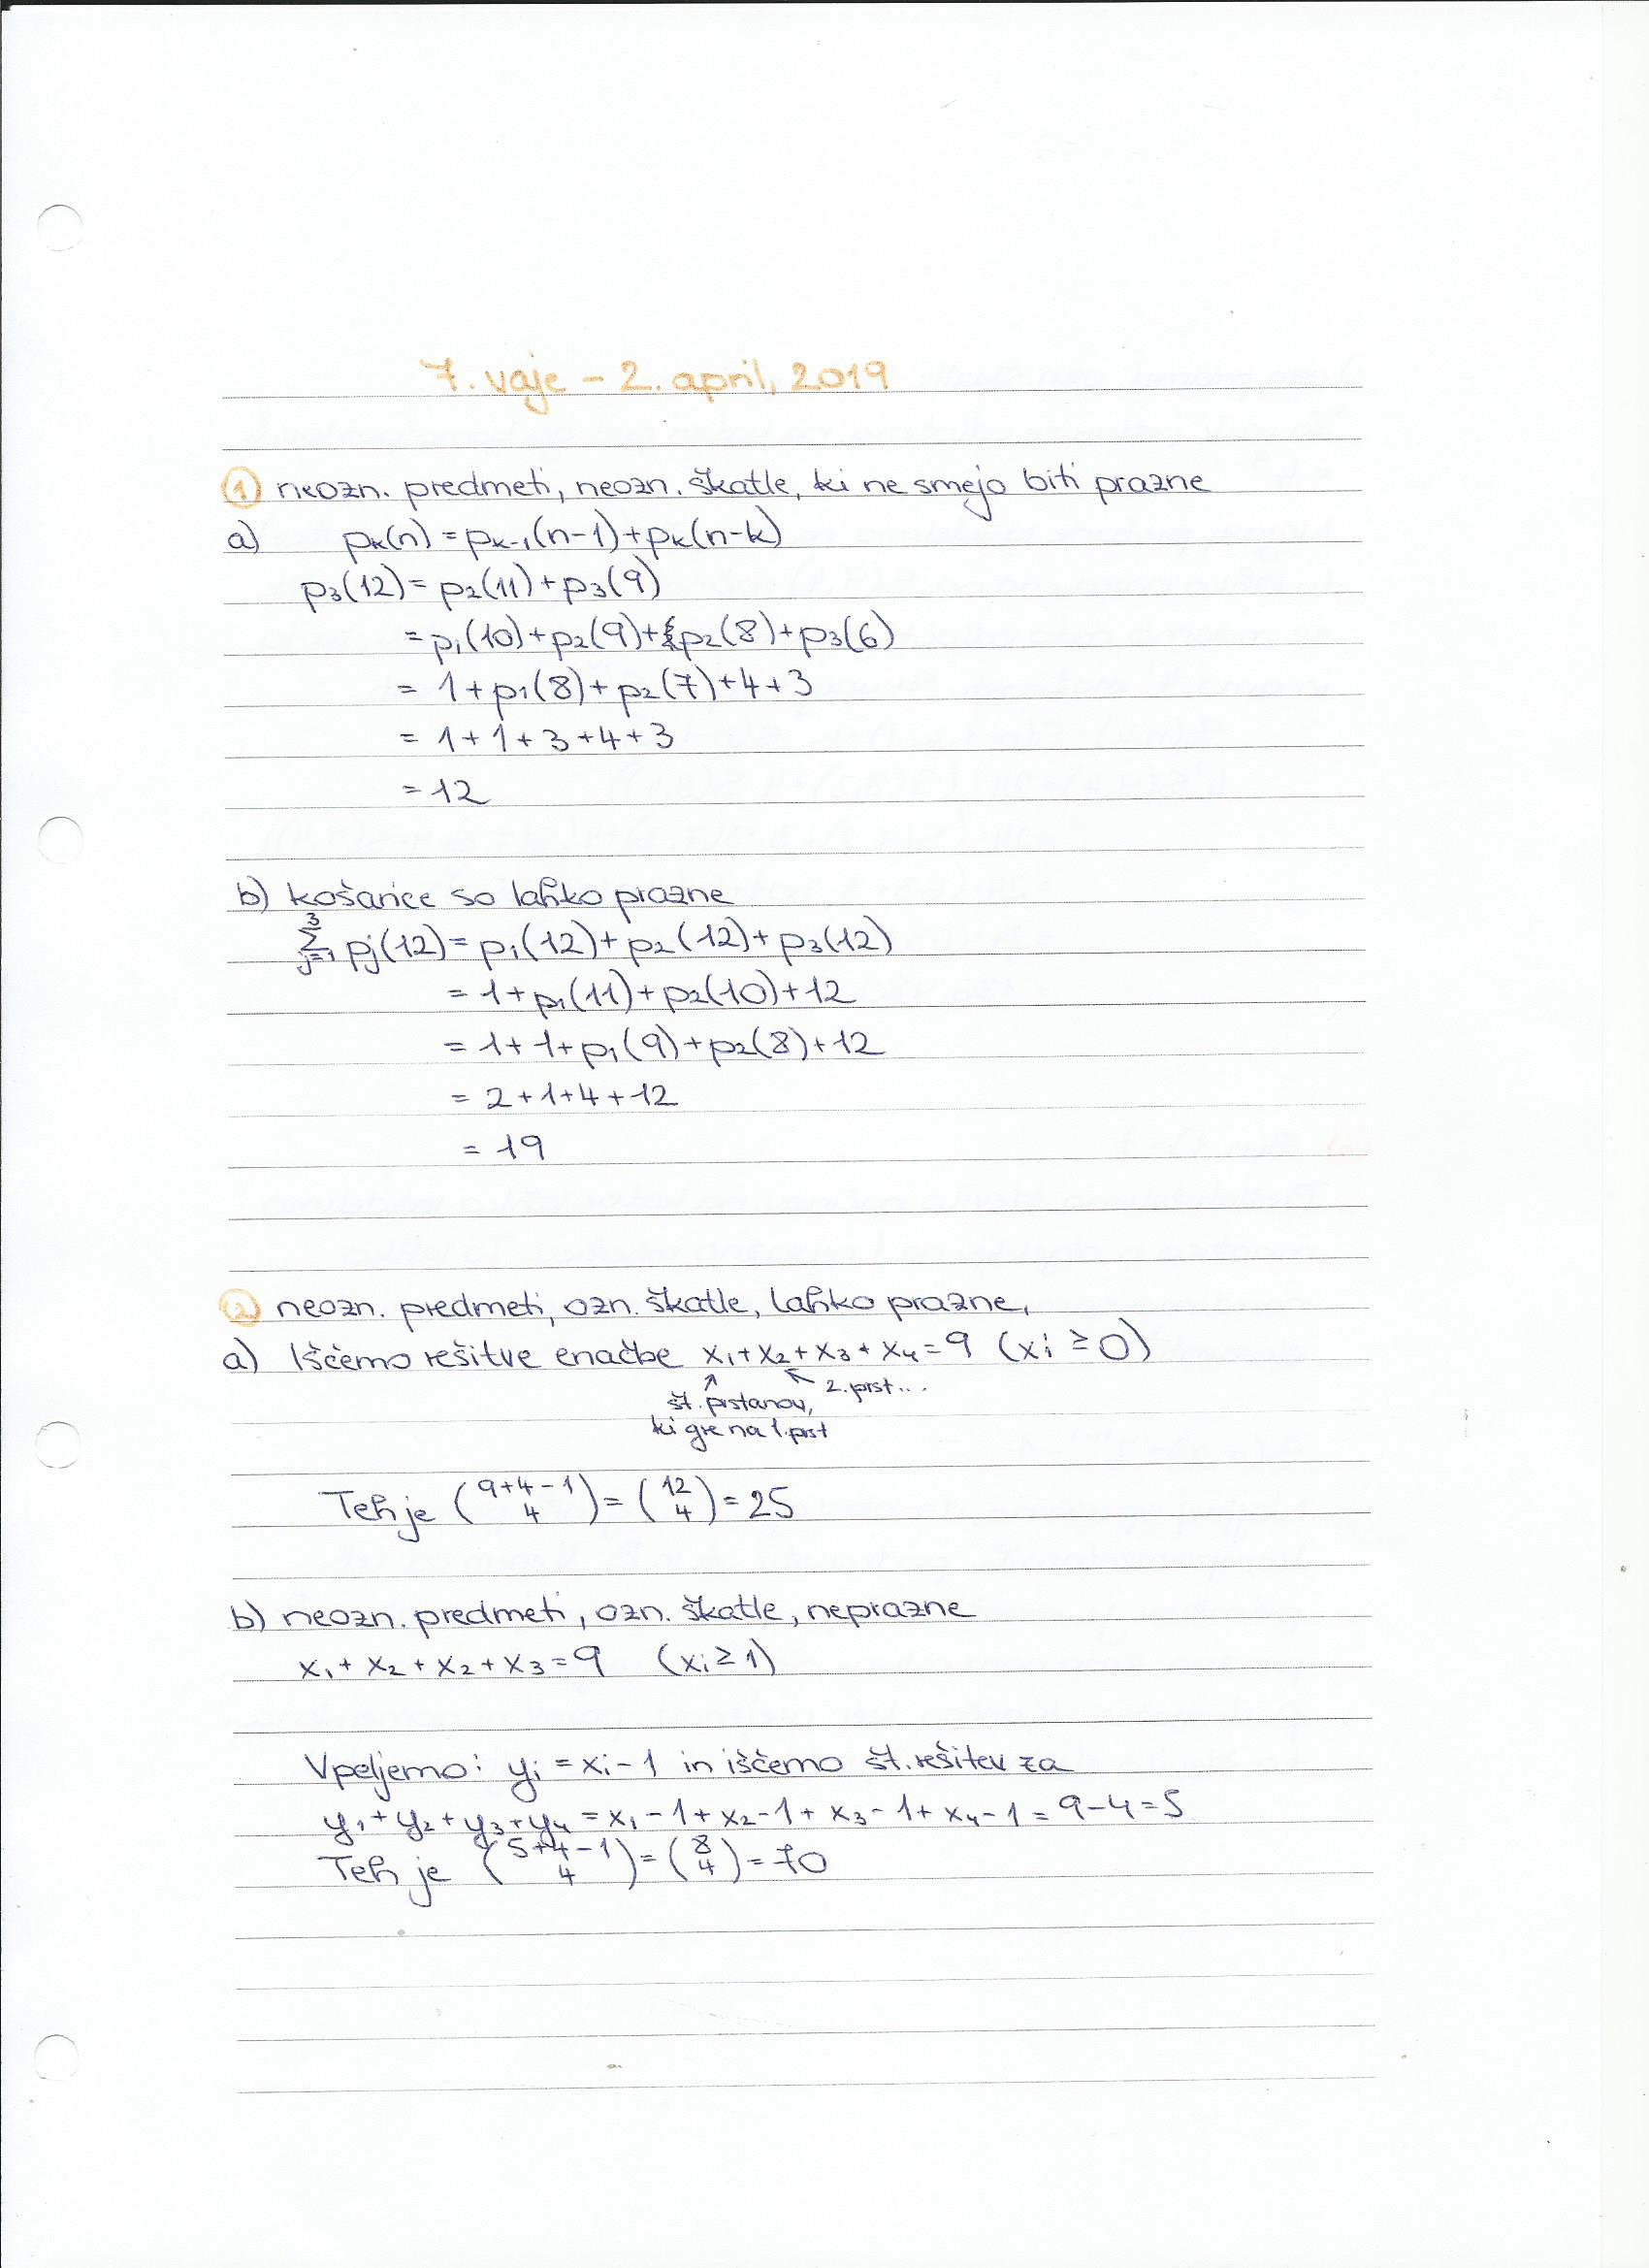 7. vaje - 2. april, 2019
1 neozn. predmeti, neozn. škatle, ki ne smejo biti prazne
a) pₖ(n) = pₖ₋₁(n-1) + pₖ(n-k)
p₃(12) = p₂(11) + p₃(9)
= p₁(10) + p₂(9) + p₂(8) + p₃(6)
= 1 + p₁(8) + p₂(7) + 4 + 3
= 1 + 1 + 3 + 4 + 3
= 12
b) košarice so lahko prazne
∑_{j=1}^{3} pj(12) = p₁(12) + p₂(12) + p₃(12)
= 1 + p₁(11) + p₂(10) + 12
= 1 + 1 + p₁(9) + p₂(8) + 12
= 2 + 1 + 4 + 12
= 19
2 neozn. predmeti, ozn. škatle, lahko prazne,
a) Iščemo rešitve enačbe x₁ + x₂ + x₃ + x₄ = 9 (xᵢ ≥ 0)
↑ ↖ 2. prst...
št. prstanov,
ki gre na 1. prst
Teh je (9+4-1 4) = (12 4) = 25
b) neozn. predmeti, ozn. škatle, neprazne
x₁ + x₂ + x₂ + x₃ = 9 (xᵢ ≥ 1)
Vpeljemo: yᵢ = xᵢ - 1 in iščemo št. rešitev za
y₁ + y₂ + y₃ + y₄ = x₁ - 1 + x₂ - 1 + x₃ - 1 + x₄ - 1 = 9 - 4 = 5
Teh je (5+4-1 4) = (8 4) = 70